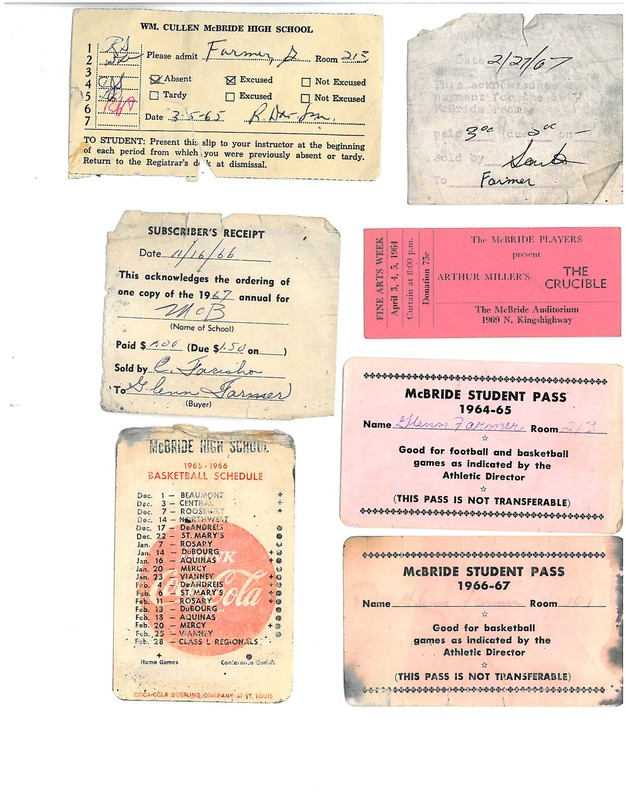 WM. CULLEN McBRIDE HIGH SCHOOL
1
2
3
4
5
6
7
Please admit Farmer, G Room 213
Absent Excused Not Excused
Tardy Excused Not Excused
Date 3-5-65
TO STUDENT: Present this slip to your instructor at the beginning
of each period from which you were previously absent or tardy.
Return to the Registrar's desk at dismissal.
Date 2/27/67
This acknowledges
payment for the
McBride
paid 3.00 (due on
sold by
To Farmer
SUBSCRIBER'S RECEIPT
Date 11/16/66
This acknowledges the ordering of
one copy of the 1967 annual for
McB
(Name of School)
Paid $ 1.00 (Due $1.50 on )
Sold by C. Farisho
To Glenn Farmer
(Buyer)
FINE ARTS WEEK
April 3, 4, 5, 1964
Curtain at 8:00 p.m.
Donation 75c
The McBRIDE PLAYERS
present
ARTHUR MILLER'S THE
CRUCIBLE
The McBride Auditorium
1909 N. Kingshighway
McBRIDE STUDENT PASS
1964-65
Name Glenn Farmer Room 213
Good for football and basketball
games as indicated by the
Athletic Director
(THIS PASS IS NOT TRANSFERABLE)
McBRIDE HIGH SCHOOL
1965-1966
BASKETBALL SCHEDULE
Dec. 1 — BEAUMONT +
Dec. 3 — CENTRAL +
Dec. 7 — ROOSEVELT +
Dec. 14 — NORTHWEST
Dec. 17 — DeANDREIS
Dec. 22 — ST. MARY'S
Jan. 7 — ROSARY
Jan. 14 — DuBOURG
Jan. 16 — AQUINAS
Jan. 20 — MERCY
Jan. 23 — VIANNEY
Feb. 4 — DeANDREIS
Feb. 6 — ST. MARY'S
Feb. 11 — ROSARY
Feb. 13 — DuBOURG
Feb. 18 — AQUINAS
Feb. 20 — MERCY
Feb. 25 — VIANNEY
Feb. 28 — CLASS L REGIONALS
Coca-Cola
Home Games Conference Games
COCA-COLA BOTTLING COMPANY of ST. LOUIS
McBRIDE STUDENT PASS
1966-67
Name Room
Good for basketball
games as indicated by the
Athletic Director
(THIS PASS IS NOT TRANSFERABLE)